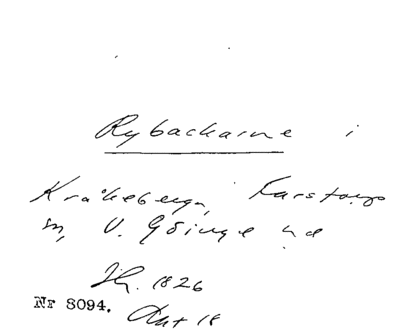 Rybackarne i
Kråkeberga, Farstorps
sn, V. Göinge hd
Jh. 1826
Nr 8094. Akt 18